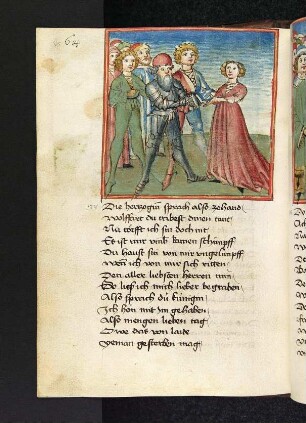 64
Die hertzogin sprach also zehand
Wolffhart du tribest dinen tant
Nu waist ich sin doch nit
Es ist mir umb kainen schimpff
Du haust sin von mir ungelimpff
Wan ich von mir sich ritten
Den aller liebsten herren min
E ließ ich mich lieber begraben
Also sprach die künigin
Ich hon mit im gehaben
Also mengen lieben tag
Owe das von laide
yeman gesterben mag